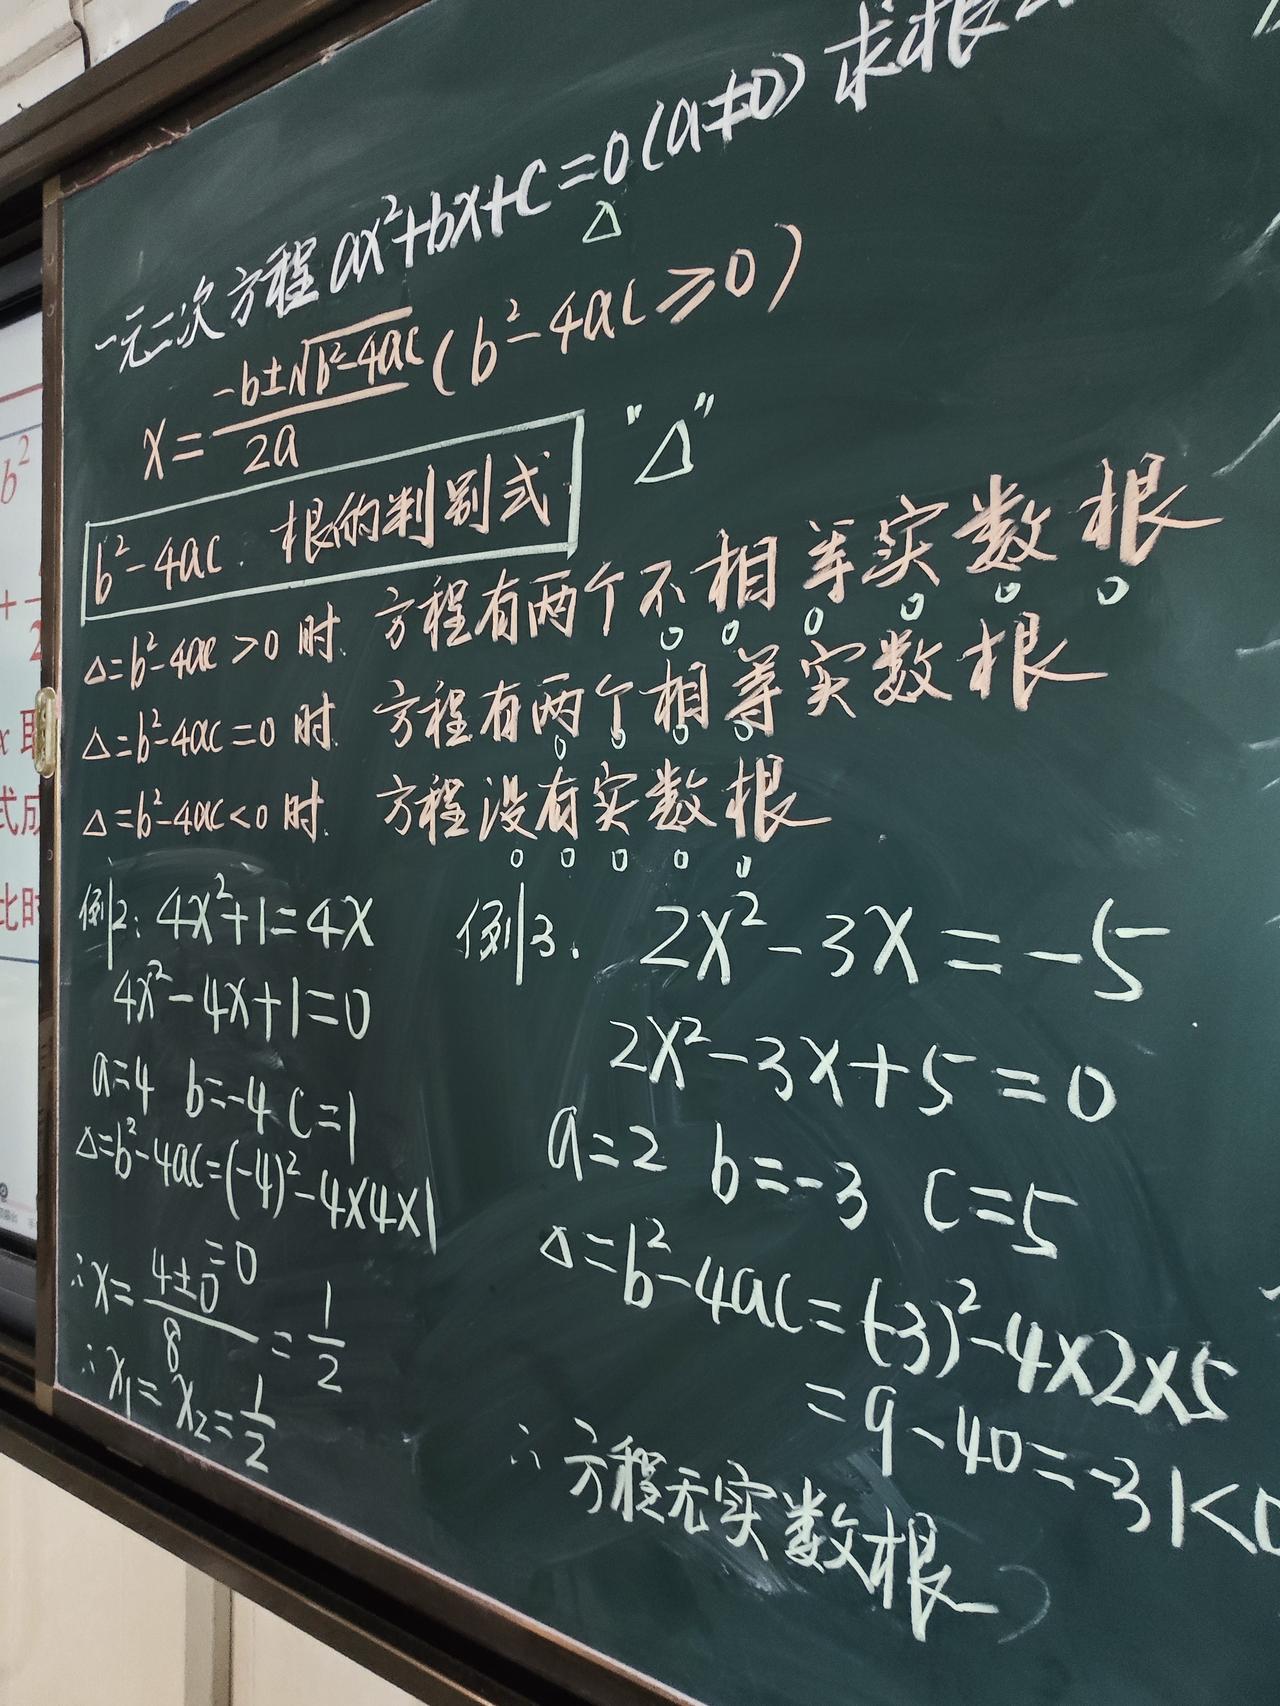 一元二次方程 ax²+bx+c=0(a≠0) 求根
△
x=(-b±√(b²-4ac))/2a (b²-4ac≥0)
b²-4ac. 根的判别式 "△"
△=b²-4ac>0 时. 方程有两个不相等实数根
△=b²-4ac=0 时. 方程有两个相等实数根
△=b²-4ac<0 时. 方程没有实数根
例2: 4x²+1=4x
4x²-4x+1=0
a=4 b=-4 c=1
△=b²-4ac=(-4)²-4×4×1
=0
∴x=(4±0)/8=1/2
∴x₁=x₂=1/2
例3. 2x²-3x=-5
2x²-3x+5=0
a=2 b=-3 c=5
△=b²-4ac=(-3)²-4×2×5
=9-40=-31<0
∴方程无实数根
b²
2
x 取
式成
比时